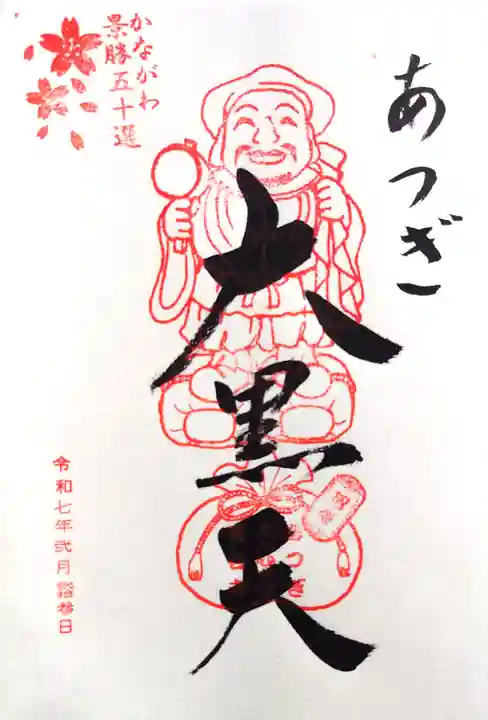 あつぎ
大黒天
かながわ
景勝五十選
令和七年弐月詣参日